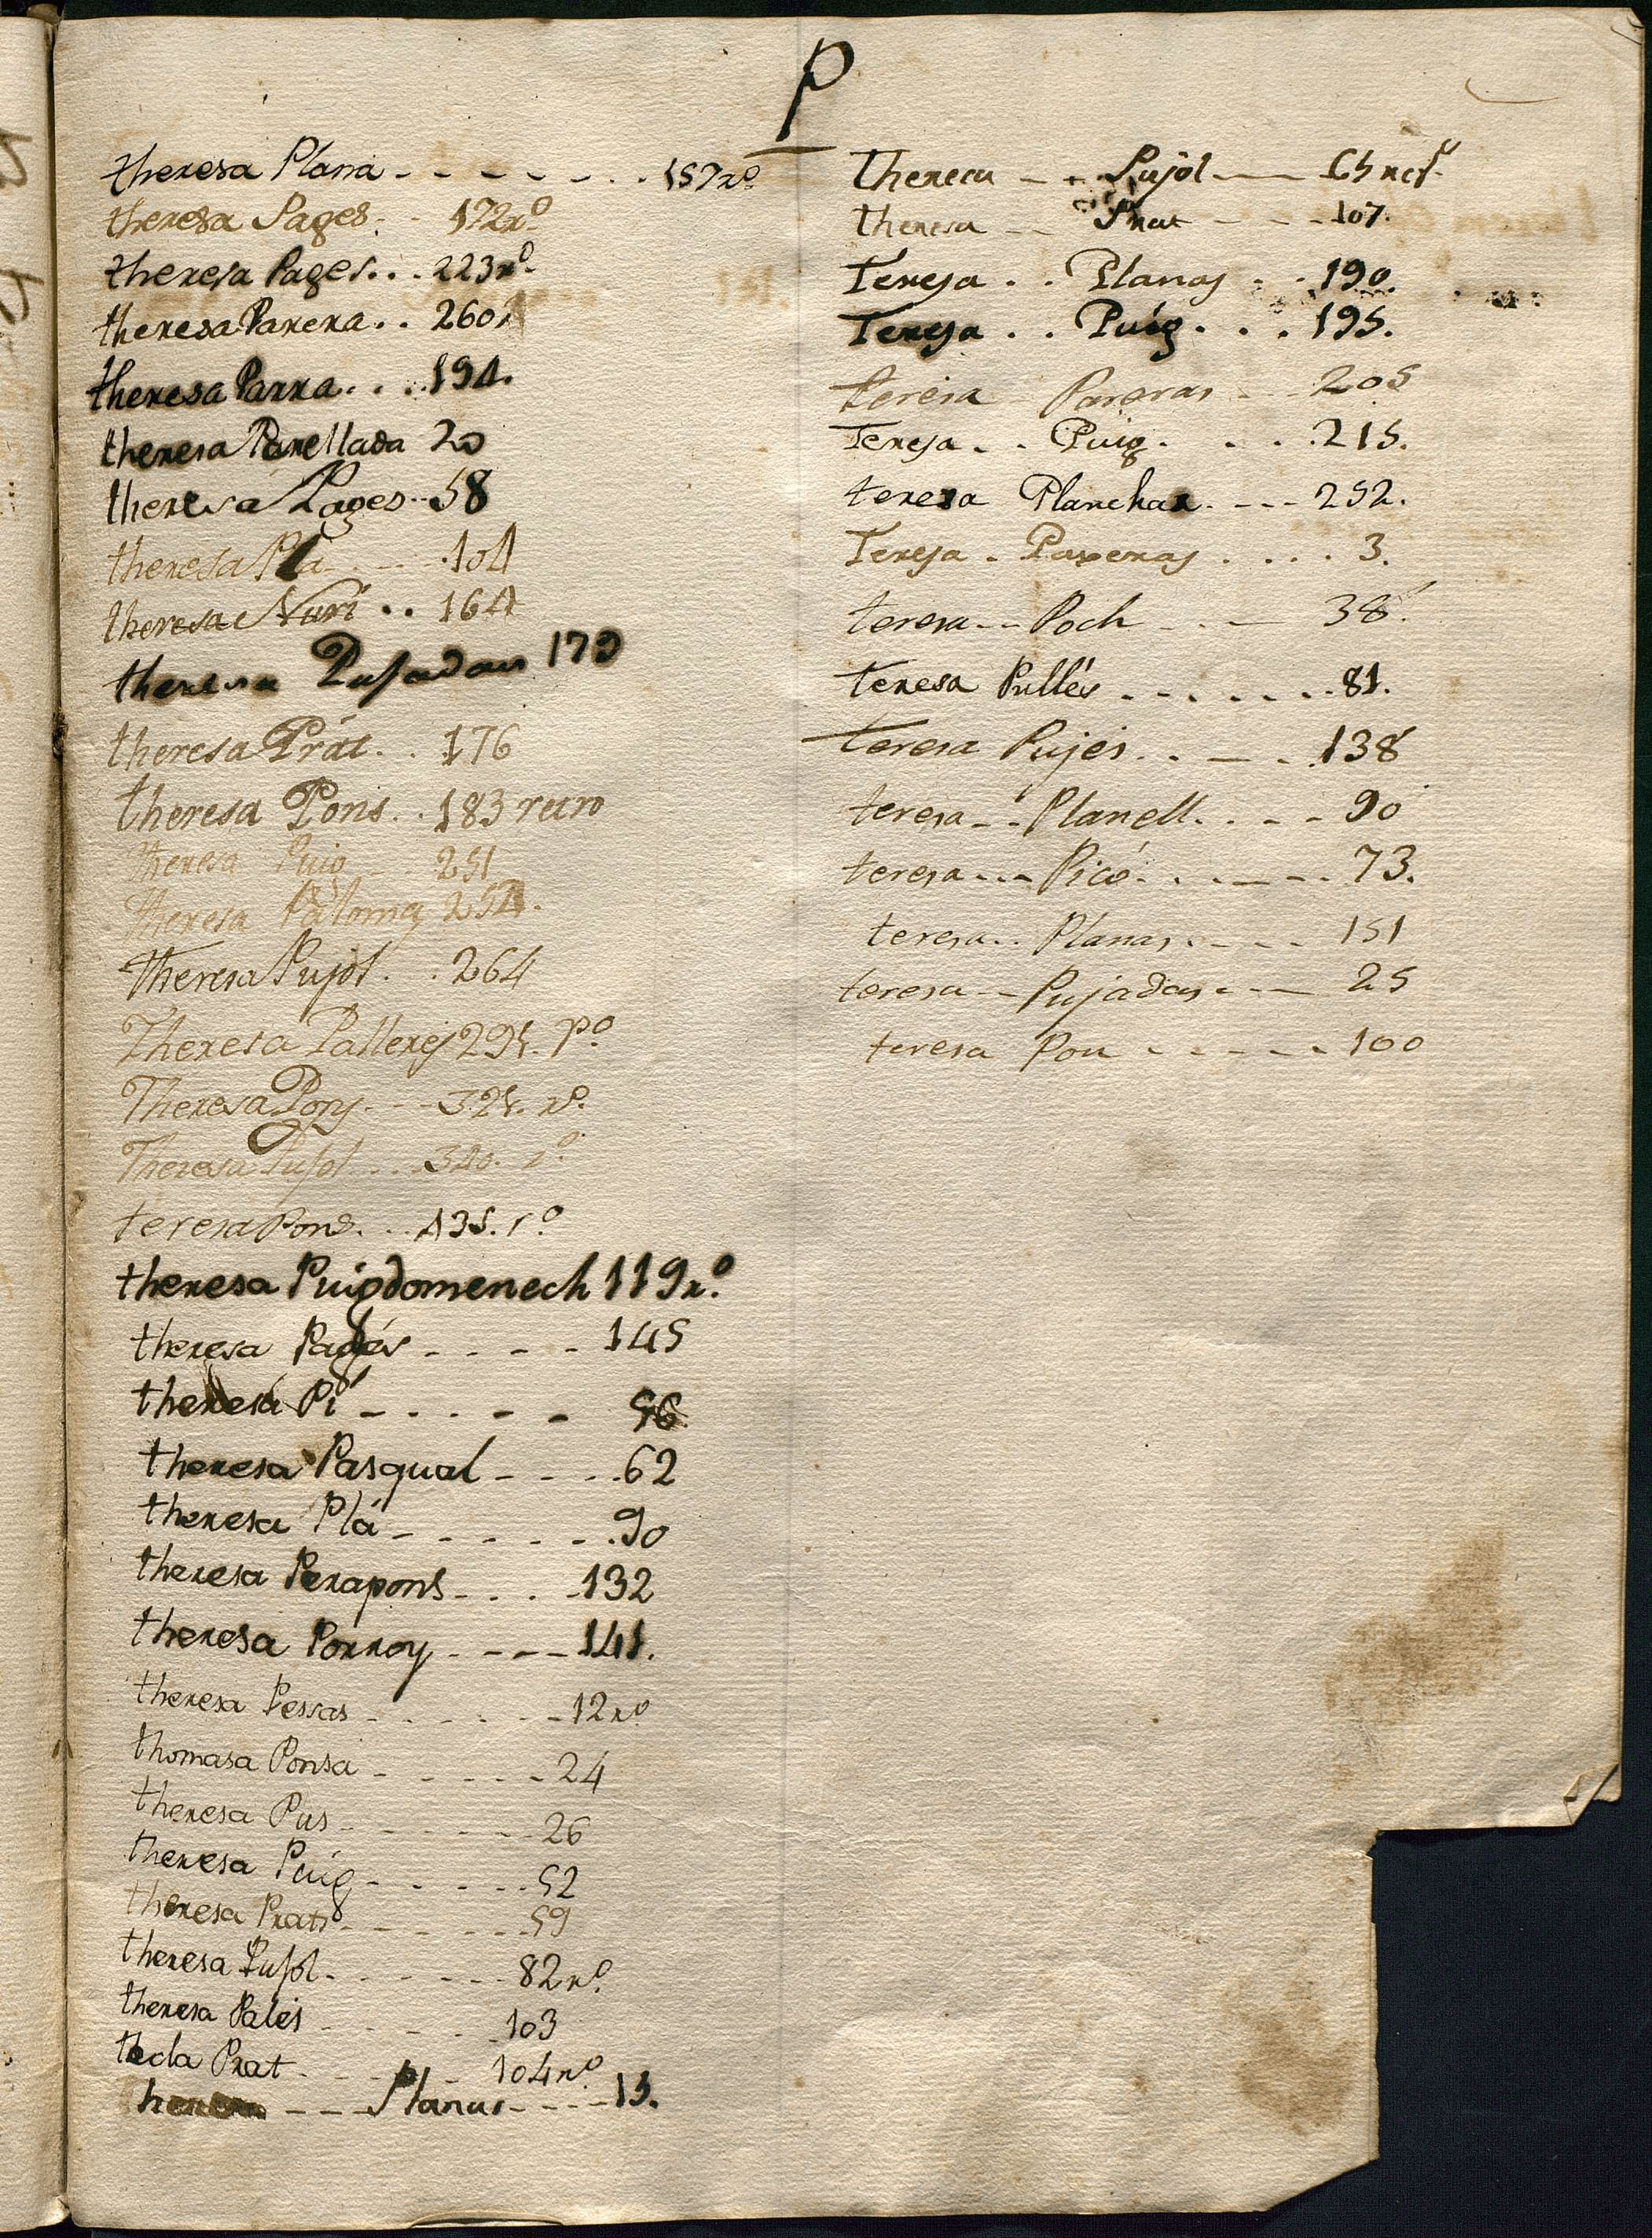 P
theresa Plana - - - - - . . 157 rº
theresa Pages. - 172 rº
theresa Pages... 223 rº
theresa Parera.. 260
theresa Parra... 194.
theresa Parellada 20
theresa Pages -- 58
theresa Pla - . - - . 104
theresa Nuri .. 164
theresa Pujadas 173
theresa Prat. . 176
theresa Pons. . 183 retro
theresa Puig - 251
theresa Paloma 252.
Theresa Pujol. . 264
Theresa Pallerej 295. pº
Theresa Pons. --- 325. rº.
Theresa Pujol . . . 320. rº
teresa Pons. . . 435. rº
theresa Puigdomenech 119 rº.
theresa Pagés - - - - 145
theresa Pi - . - - - 56
theresa Pasqual - - - . 62
theresa Plá - - - - - - . 90
theresa Perapons - . . - 132
theresa Porroy - - - - 141.
theresa Pessas - - - - - - 12 rº
thomasa Ponsa - - - - - 24
theresa Pus - - - - - - 26
theresa Puig - - - - - . 52
theresa Prats - - - - - 59
theresa Pujol - - - - - - 82 rº.
theresa Palés - - - - - 103
thecla Prat - - - - - 104 rº
Planas - - - - 15.
Theresa - - Pujol --
theresa -- Prat - - - 107.
Teresa . . Planas - . 190.
Teresa . . Puig. . . 195.
teresa Pareras - - 205
Teresa. . Puig. . . . 215.
teresa Planchar. - - - 252.
Teresa . Pareras . . . . 3.
teresa - - Poch - . - 38.
teresa Pullés - - - - - - 81.
teresa Pujés. . - . 138
teresa - - Planell. . - - 90
teresa - - - Picó. . . - - - 73.
teresa. . Planas. - - - 151
teresa - - Pujadas - - - 25
teresa Pou - - - - - 100